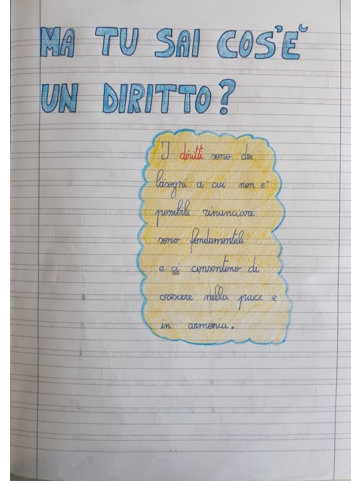 MA TU SAI COS'È
UN DIRITTO?
I diritti sono dei
bisogni a cui non è
possibile rinunciare
sono fondamentali
e ci consentono di
crescere nella pace e
in armonia.